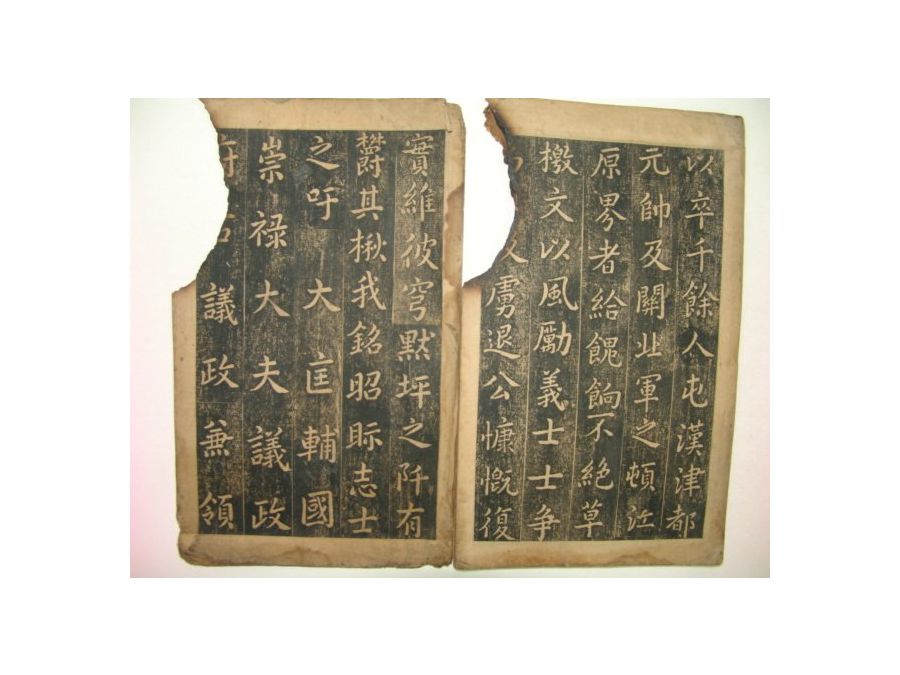 以卒千餘人屯漢津都
元帥及關北軍之頓江
原界者給餽餉不絕草
檄文以風勵義士士爭
以虜退公慷慨復
實維彼穹默坪之阡有
欝其楸我銘昭眎志士
之吁大匡輔國
崇祿大夫議政
府右議政兼領